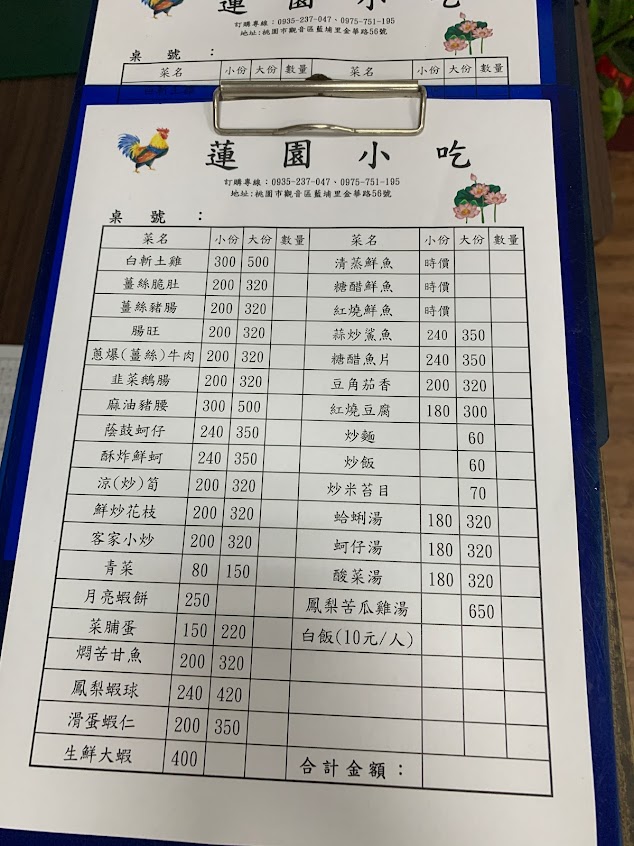 蓮園小吃
訂購專線：0935-237-047、0975-751-195
地址:桃園市觀音區藍埔里金華路56號
桌號：
菜名 小份 大份 數量 菜名 小份 大份 數量
蓮園小吃
訂購專線：0935-237-047、0975-751-195
地址:桃園市觀音區藍埔里金華路56號
桌號：
菜名 小份 大份 數量 菜名 小份 大份 數量
白斬土雞 300 500 清蒸鮮魚 時價
薑絲脆肚 200 320 糖醋鮮魚 時價
薑絲豬腸 200 320 紅燒鮮魚 時價
腸旺 200 320 蒜炒鯊魚 240 350
蔥爆(薑絲)牛肉 200 320 糖醋魚片 240 350
韭菜鵝腸 200 320 豆角茄香 200 320
麻油豬腰 300 500 紅燒豆腐 180 300
蔭鼓蚵仔 240 350 炒麵 60
酥炸鮮蚵 240 350 炒飯 60
涼(炒)筍 200 320 炒米苔目 70
鮮炒花枝 200 320 蛤蜊湯 180 320
客家小炒 200 320 蚵仔湯 180 320
青菜 80 150 酸菜湯 180 320
月亮蝦餅 250 鳳梨苦瓜雞湯 650
菜脯蛋 150 220 白飯(10元/人)
燜苦甘魚 200 320
鳳梨蝦球 240 420
滑蛋蝦仁 200 350
生鮮大蝦 400 合計金額：